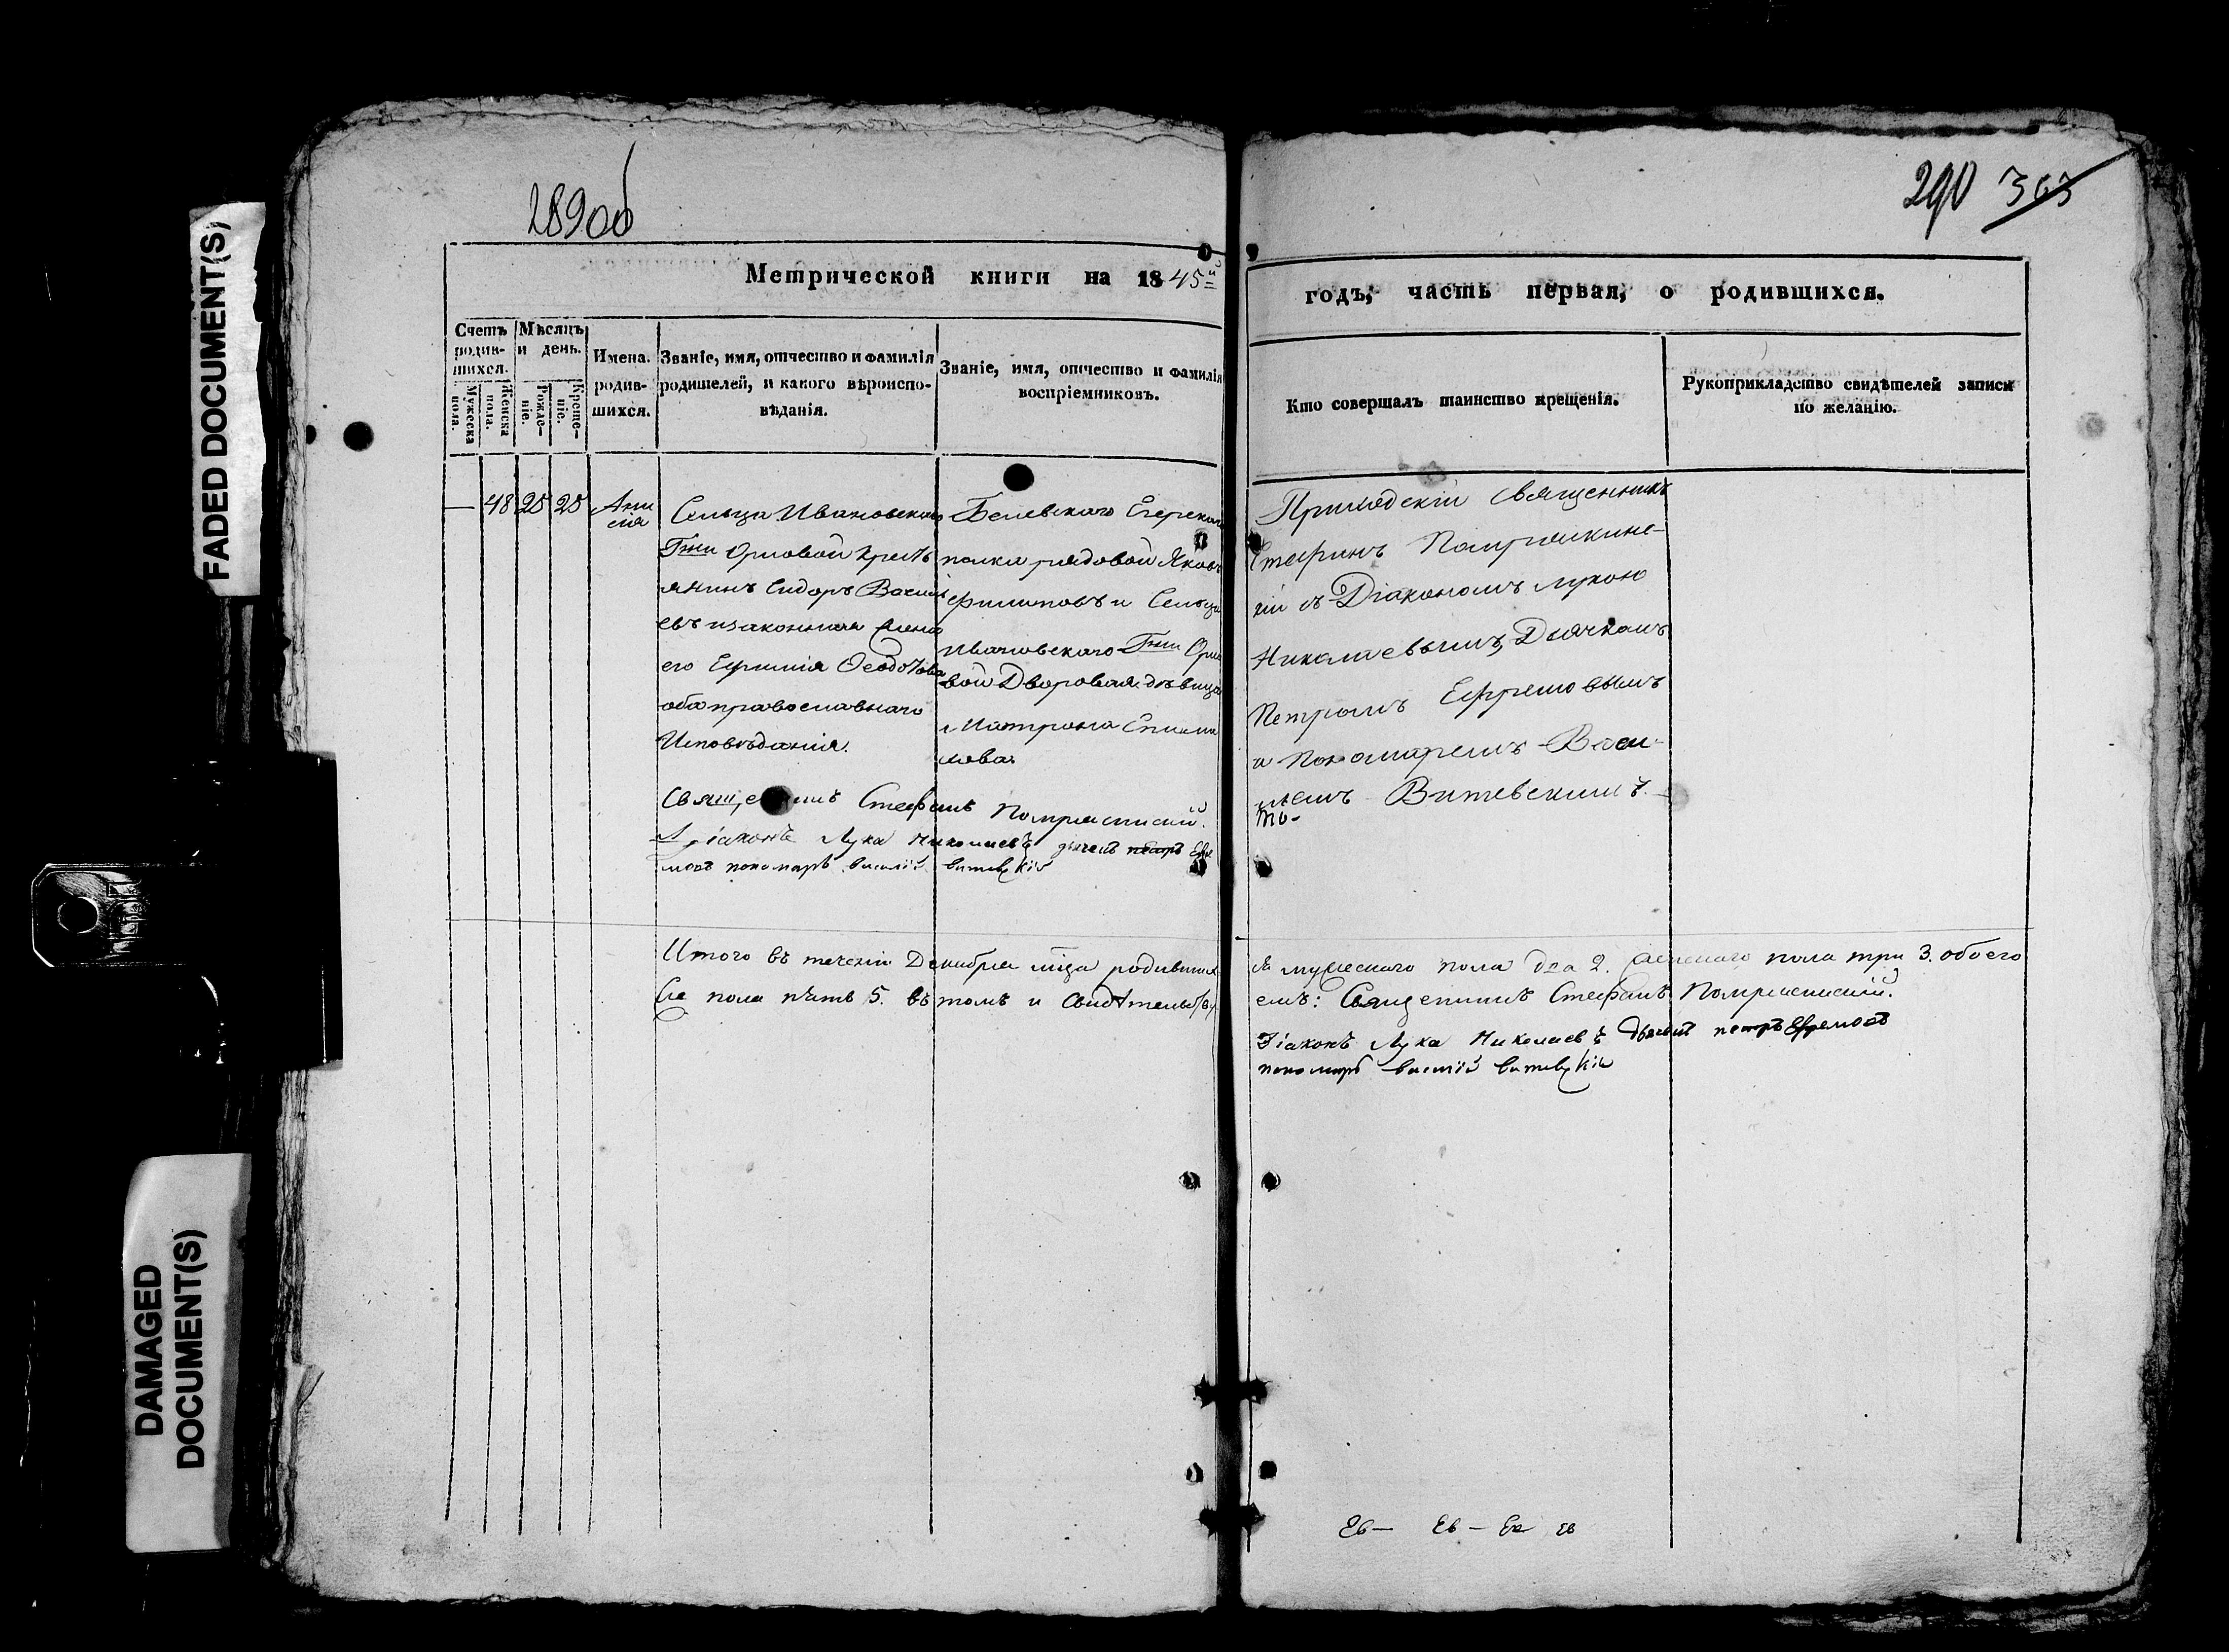 FADED DOCUMENT(S)
DAMAGED
DOCUMENT(S)
289об
290 303
Метрической книги на 1845й
годъ, часть первая, о родившихся.
Счетъ
родив-
шихся.
Мужеска
пола.
Женска
пола.
Мѣсяцъ
и день.
Рожде-
ніе.
Креще-
ніе.
Имена
родив-
шихся.
Званіе, имя, отчество и фамилія
родителей, и какого вѣроиспо-
вѣданія.
Званіе, имя, отчество и фамилія
воспріемниковъ.
Кто совершалъ таинство крещенія.
Рукоприкладство свидѣтелей записи
по желанію.
— 48 25 25
Ани
сія
Сельца Ивановскаго
Гжи Орловой кресть
янинъ Сидоръ Василь
евъ изаконная жена
его Ефимія Ѳеодотова
оба православнаго
Исповѣданія.
Белевскаго Егерскаго
полка рядовой Яковъ
Филиповъ и Сельца
Ивановскаго Гжи Орло
вой Дворовая дѣвица
Матрона
Приходскій Священникъ
Стефанъ
съ Діакономъ Лукою
Николаевымъ, Дьячкомъ
Петромъ Ефремовымъ
и Пономаремъ Васи-
ліемъ Витевскимъ.
Стефанъ
Діаконъ Лука Николаевъ дьячекъ петръ Ефре
мовъ пономарь василій витевскій
Итого въ теченіи Декабря мца родивших
ся мужескаго пола два 2. женскаго пола три 3. обоего
пола пять 5. въ томъ и свидѣтельств
емъ: Священникъ Стефанъ
Діаконъ Лука Николаевъ дьячекъ петръ Ефремовъ
пономарь василій витевскій